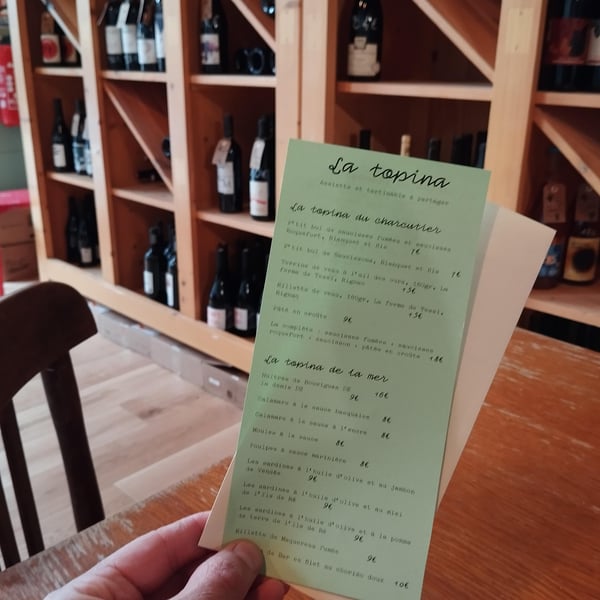 La topina
Assiette et tartinable à partager
La topina du charcutier
P'tit bol de saucisses fumées et saucisses
Roquefort, Blanquet et fils 7€
P'tit bol de Saucissons, Blanquet et fils 7€
Terrine de veau à l'ail des ours, 180gr, La
ferme de Texel, Rignac
Rillette de veau, 180gr, La ferme de Texel,
Rignac
Pâté en croûte 9€
La complète : saucisses fumées + saucisses
roquefort + saucisson + pâtée en croûte 18€
La topina de la mer
Huîtres de Bouzigues
la demie
9€
Calamars à la sauce basquaise 8€
Calamars à la sauce à l'encre 8€
Moules à la sauce 8€
Poulpes à sauce marinière 8€
Les sardines à l'huile d'olive et au jambon
de Vendée 9€
Les sardines à l'huile d'olive et au miel
de l'île de Ré 9€
Les sardines à l'huile d'olive et à la pomme
de terre de l'île de Ré 9€
Rillette de Maquereau fumée 9€
de Bar en filet au chorizo doux 10€